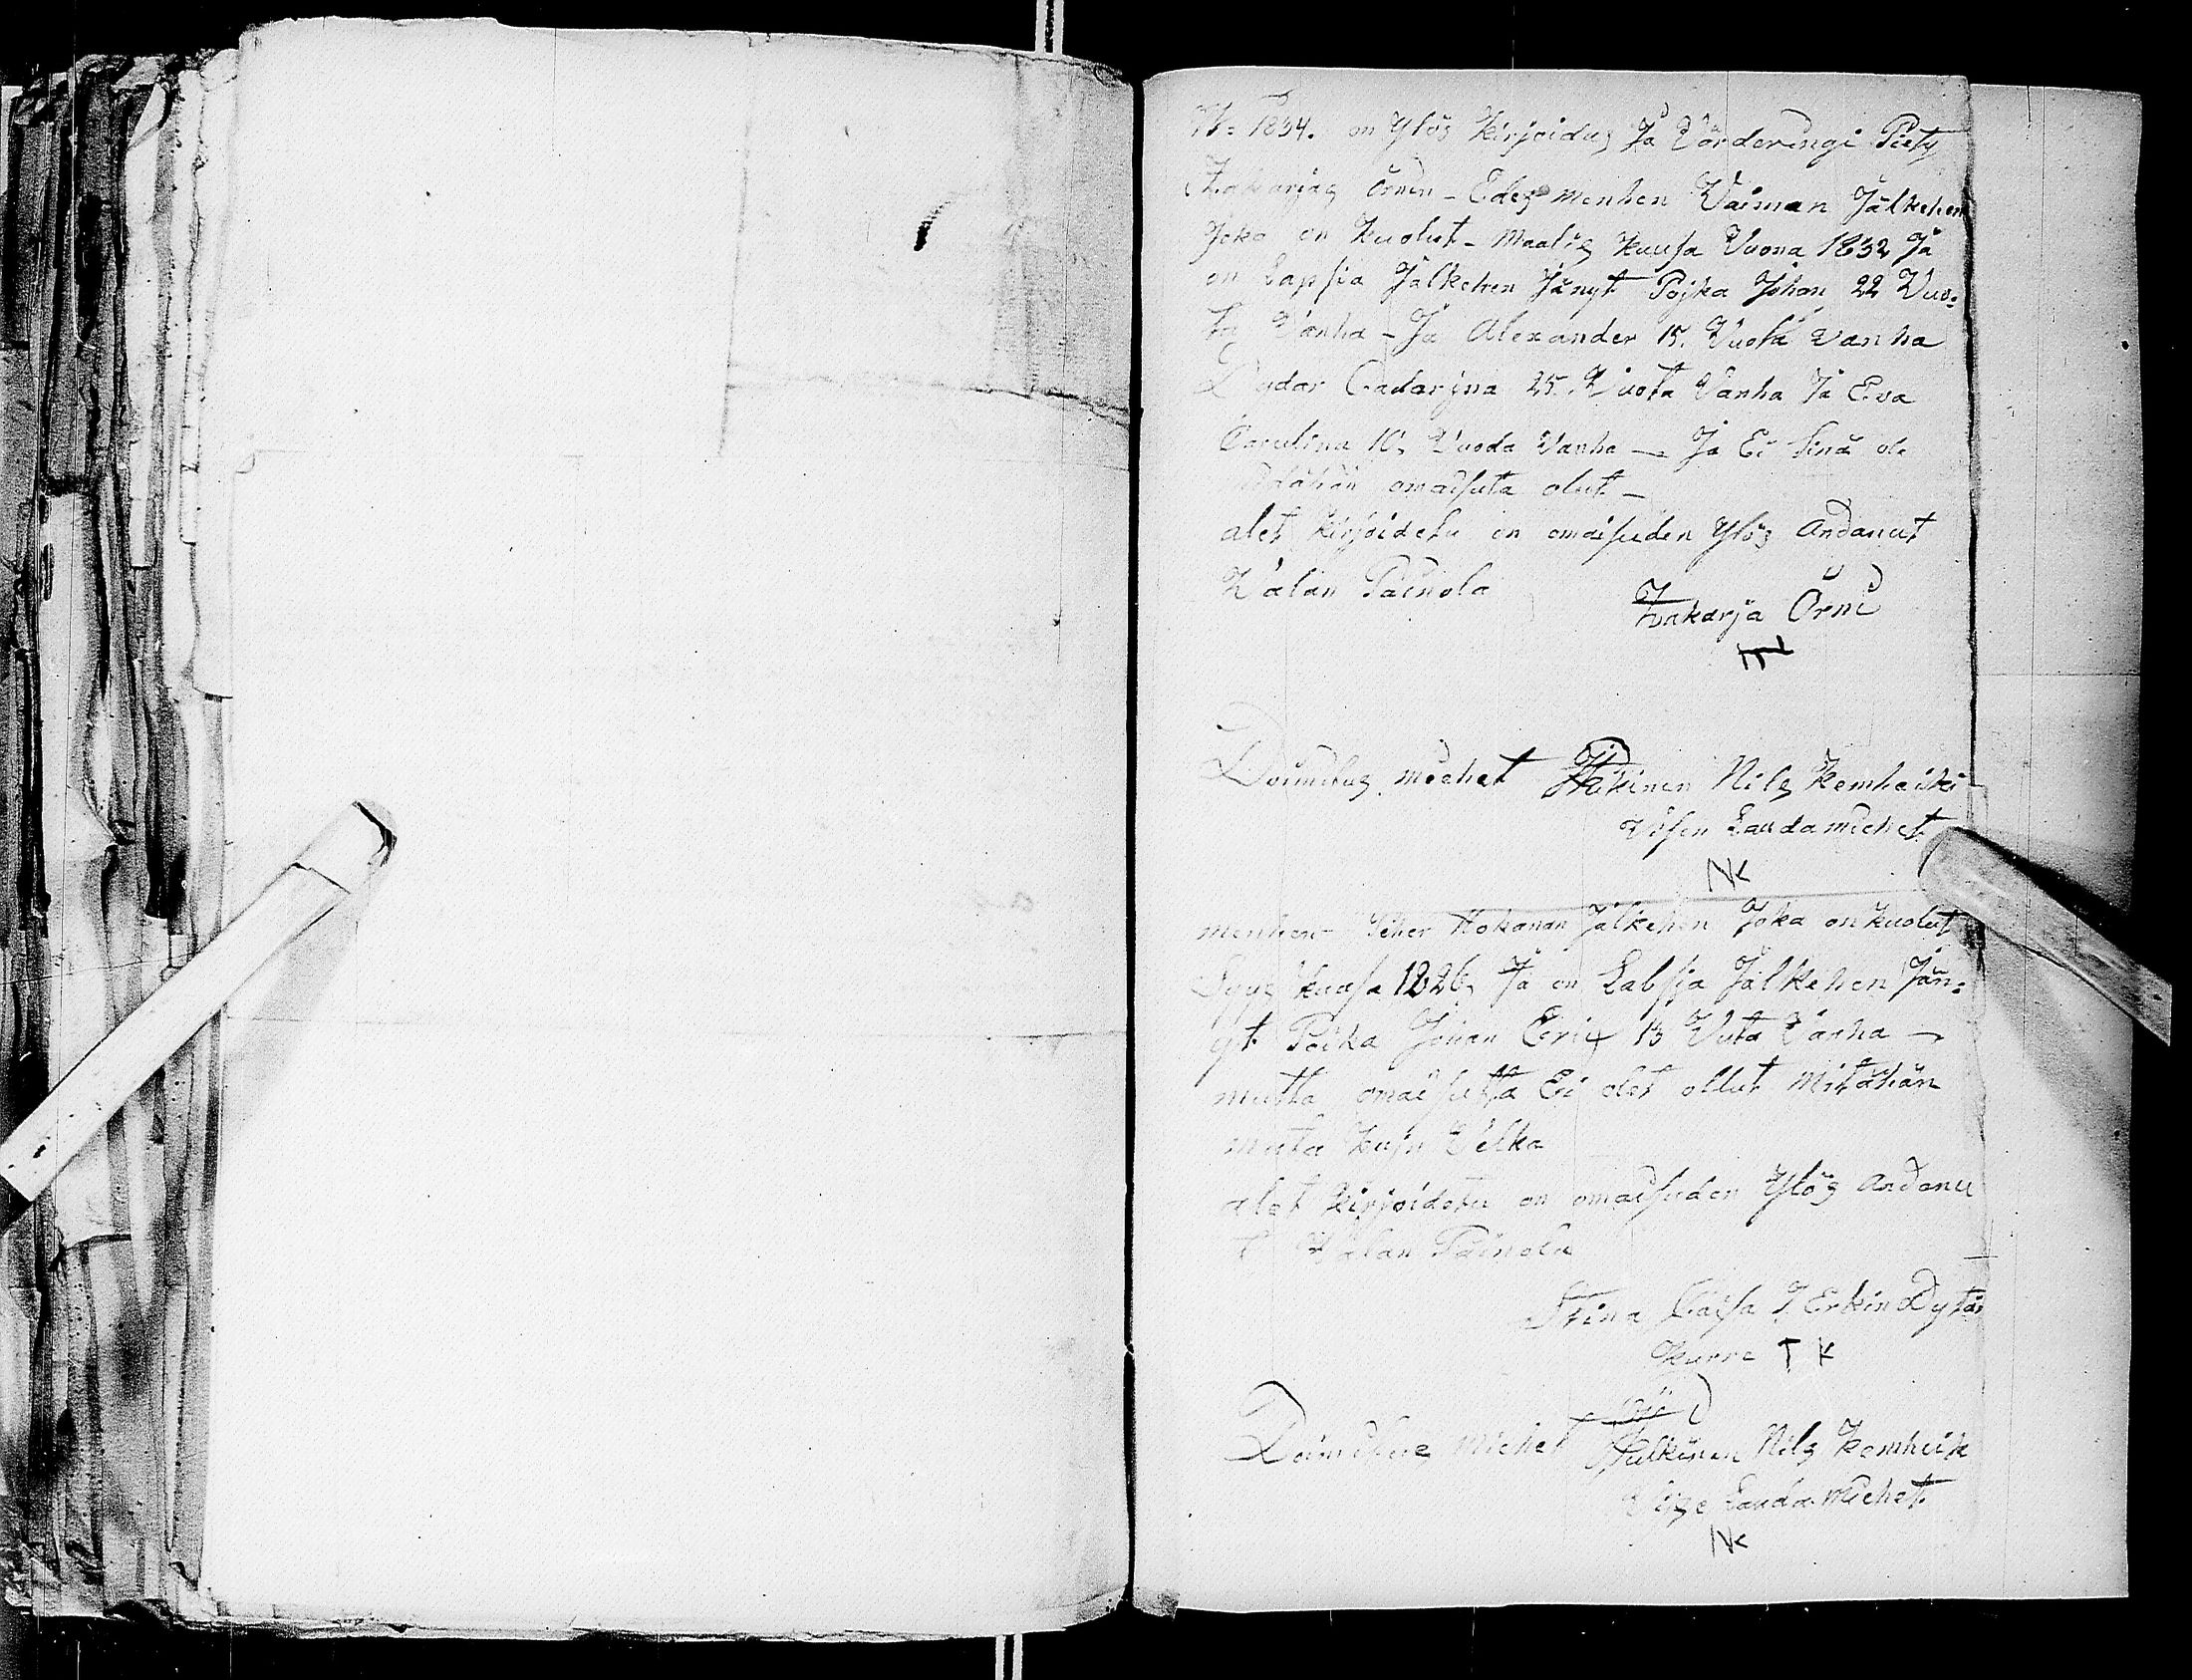 W: 1834. on Ylös kirjoidus Ja Värderingi Piety
Zakarjas Örnin - Edes menhen Vaiman Jälkehen
Joka on kuolut - Maalis kuusa Vuona 1832 Ja
on Lapsia Jälkehen Jänyt Pojka Johan 22 Vuo:
ta Vanha - Ja Alexander 15. Vuota vanha
Dydar Cadarjna 25. Vuota Vanha Ja Eva
Carulina 10. Vuoda Vanha — Ja Ei sinä ole
omaisuta olut —
alet kirjoidetu on omaisuden Ylös andanut
Valan Painola
Zakarja Örni
Doimitus miehet Nils Kemheiki
Visen Laudamiehet
NK
menhen Hokanan Jälkehen Joka on kuolut
Syys kuusa 1826, Ja on Labsia Jälkehen Jän:
yt Poika Johan Eerix 13 Vuta Vanha —
mutta omaisutta Ei olet ollut Mitähän
muta kujn Velka
alet kirjoidetu on omaisuden Ylös andanu
t Valan Painola
Stina Caisa J. Erkin Dytär
Kurre T K
Doimitus Miehet Nils Kemheik
Lauda Miehet
NK